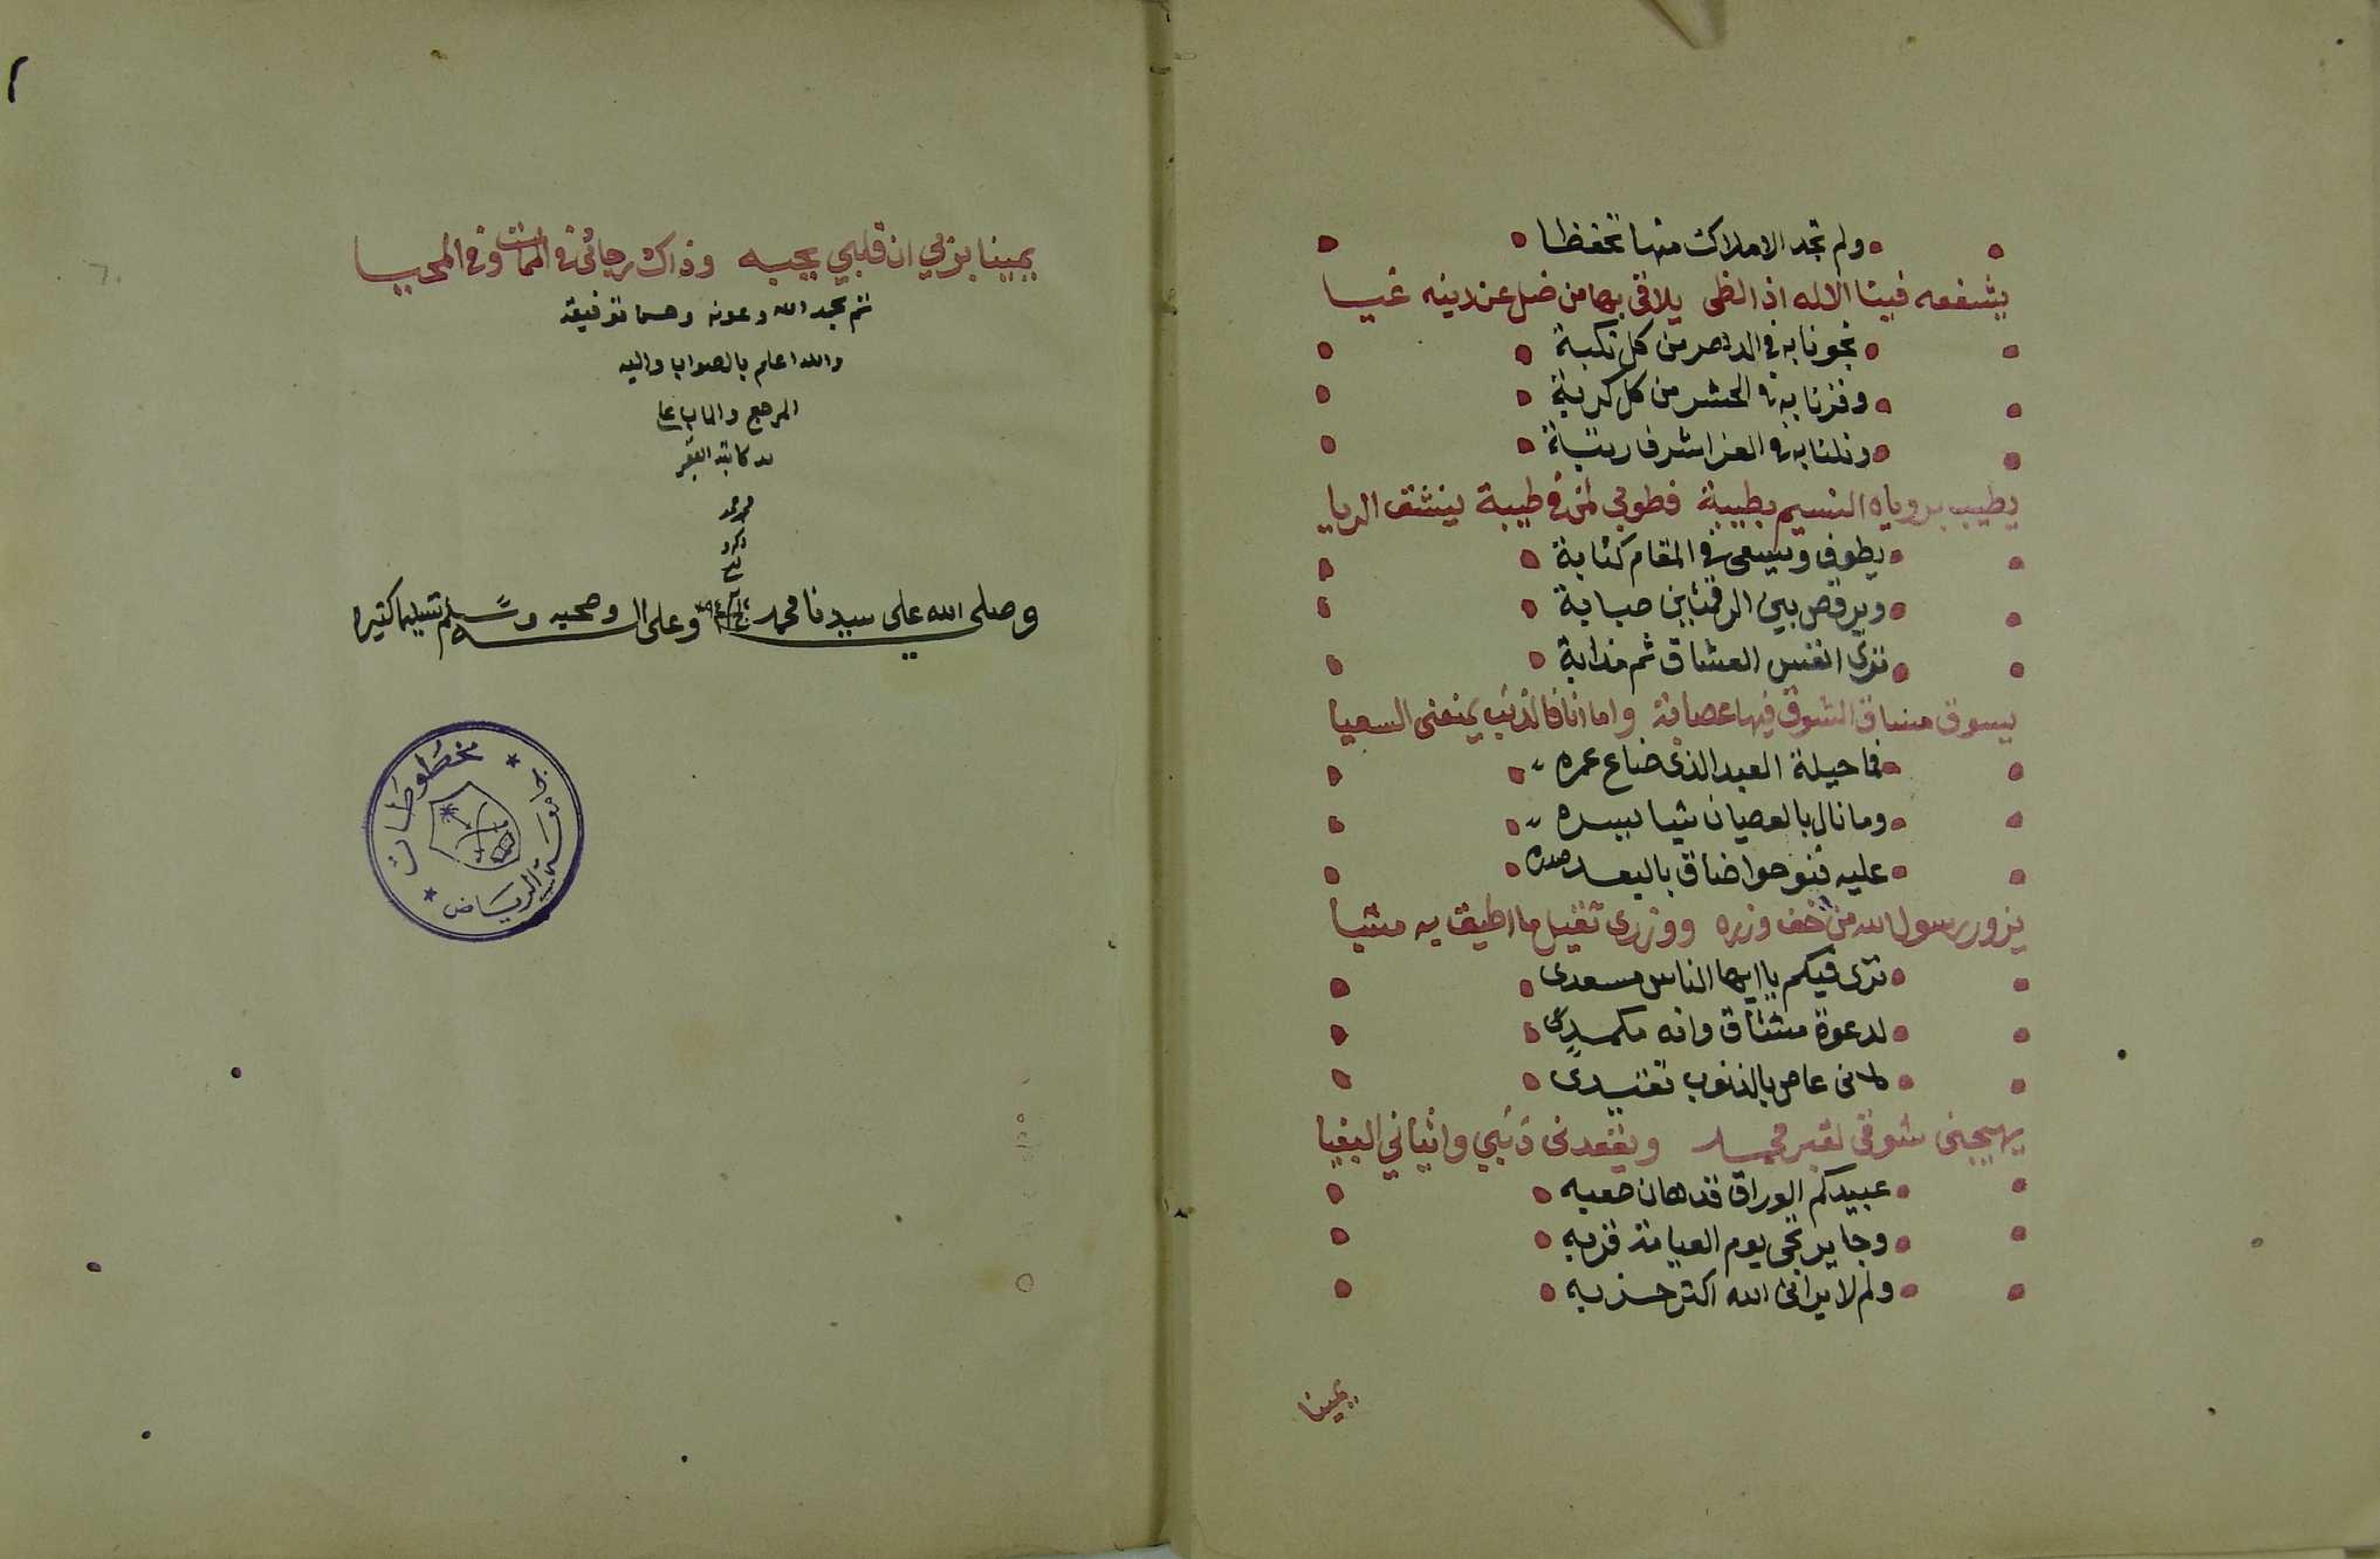 ولم تجد الاملاك منها تحفظا
يشفعه فينا الاله اذ الظى يلاقى بها من ضل عن دينه غيا
نجونا به في الدهر من كل نكبة
وفزنا به في الحشر من كل كربة
ونلنا به في العز اشرف رتبة
يطيب برؤياه النسيم بطيبة فطوبى لمن في طيبة ينشق الريا
يطوف ويسعى في المقام كئابة
ويرقص بين الرقمتين صبابة
ترى انفس العشاق ثم مذابة
يسوق مساق الشوق فيها عصابة واما انا فالذنب يمنعنى السعيا
فما حيلة العبد الذى ضاع عمره
وما نال بالعصيان شيا يسره
عليه فنوحوا ضاق بالبعد صدره
يزور رسول الله من خف وزره ووزرى ثقيل ما اطيق به مشيا
ترى فيكم يا ايها الناس مسعدى
لدعوة مشتاق وانه مكمد
لانى عاص بالذنوب تقيدى
يهيجنى شوقى لقبر محمد ويقعدنى ذنبي واثيانى البغيا
عبيدكم الوراق قد هان صعبه
وجا يرتجى يوم القيامة قربه
ولم لا يرانى الله اكثر حزبه
يمينا
يمينا بربي ان قلبي يحبه وذاك رجائى فى الممات وفى المحيا
تم بحمد الله وعونه وحسن توفيقه
والله اعلم بالصواب واليه
المرجع والماب على
يد كاتبه الفقير
وصلى الله على سيدنا محمد وعلى اله وصحبه وسلم تسليما كثيرا
مخطوطات
الرياض